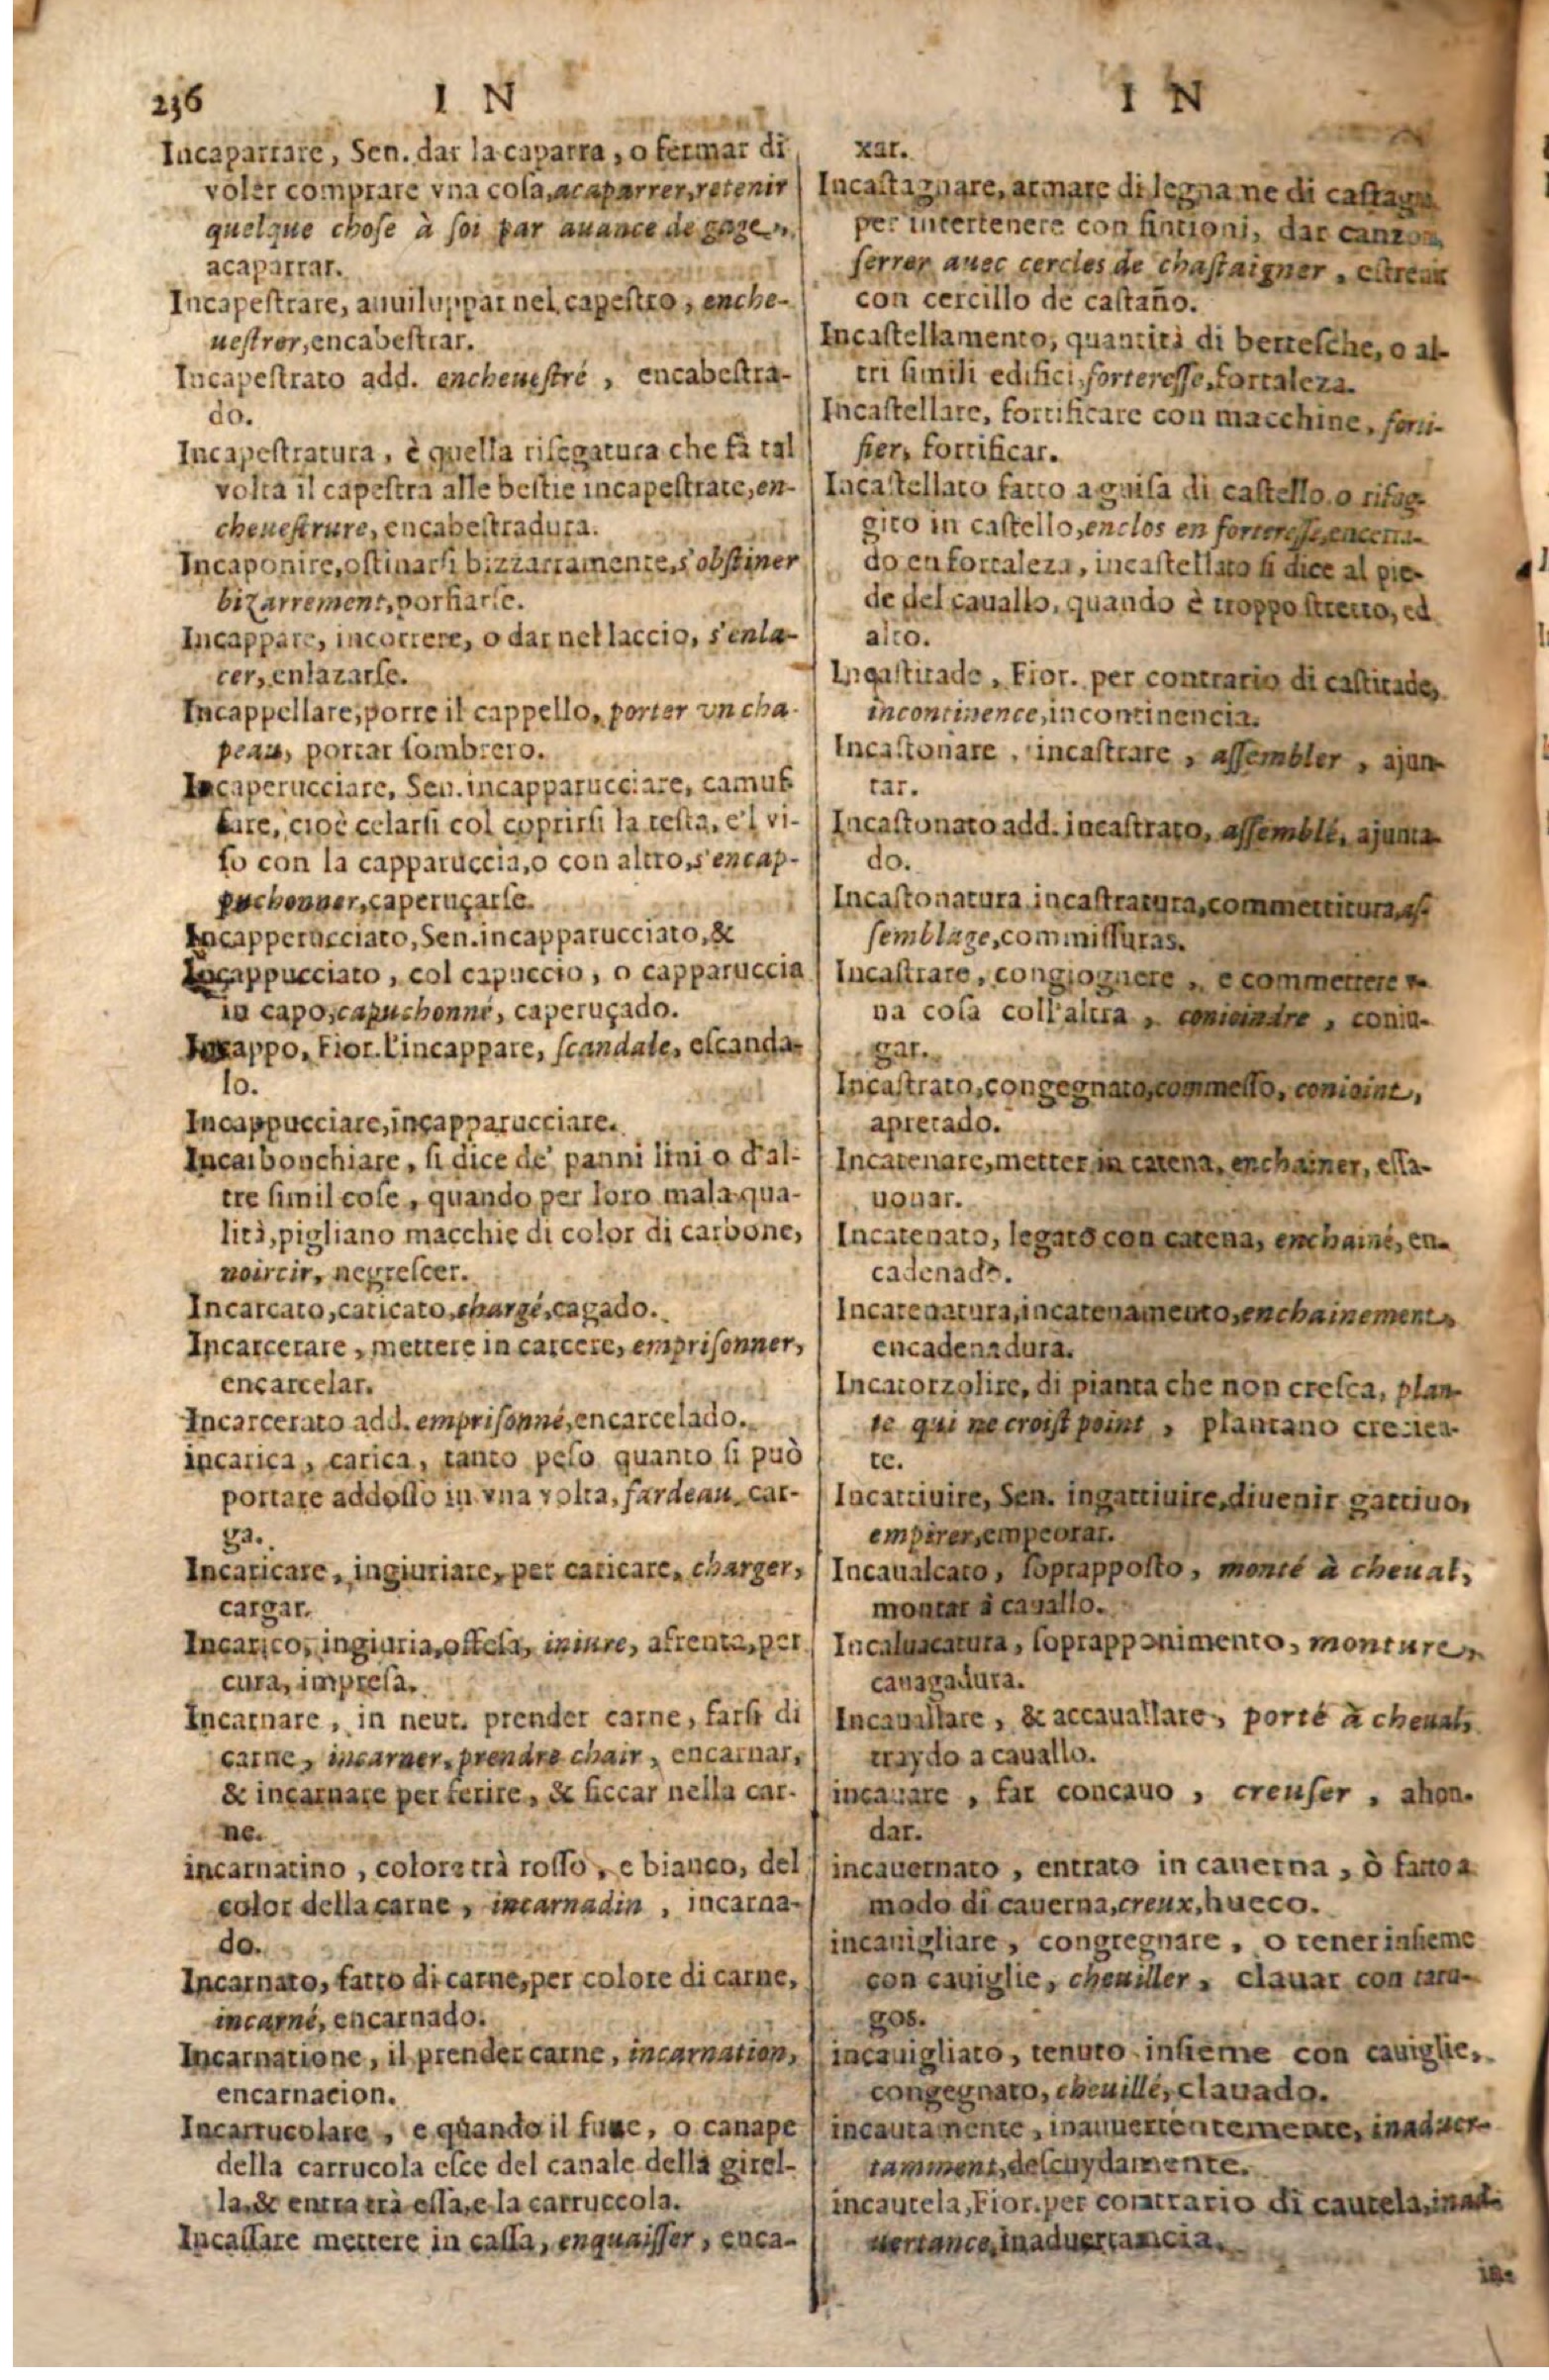 236 I N
Incaparrare, Sen. dar la caparra, o fermar di
voler comprare vna coſa, acaparrer, retenir
quelque choſe à ſoi par auance de gage,
acaparrar.
Incapeſtrare, auuiluppar nel capeſtro, enche-
ueſtrer, encabeſtrar.
Incapeſtrato add. encheueſtré, encabeſtra-
do.
Incapeſtratura, è quella riſegatura che fà tal
volta il capeſtra alle beſtie incapeſtrate, en-
cheueſtrure, encabeſtradura.
Incaponire, oſtinarſi bizzarramente, s'obſtiner
bizarrement, porfiarſe.
Incappare, incorrere, o dar nel laccio, s'enla-
cer, enlazarſe.
Incappellare, porre il cappello, porter vn cha-
peau, portar ſombrero.
Incaperucciare, Sen. incapparucciare, camuf-
fare, cioè celarſi col coprirſi la teſta, e'l vi-
ſo con la capparuccia, o con altro, s'encap-
puchonner, caperuçarſe.
Incapperucciato, Sen. incapparucciato, &
Incappucciato, col capuccio, o capparuccia
in capo, capuchonné, caperuçado.
Incappo, Fior. l'incappare, ſcandale, eſcanda-
lo.
Incappucciare, incapparucciare.
Incarbonchiare, ſi dice de' panni lini o d'al-
tre ſimil coſe, quando per loro mala qua-
lità, pigliano macchie di color di carbone,
noircir, negreſcer.
Incarcato, caricato, chargé, cagado.
Incarcerare, mettere in carcere, empriſonner,
encarcelar.
Incarcerato add. empriſonné, encarcelado.
incarica, carica, tanto peſo quanto ſi può
portare addoſſo in vna volta, fardeau, car-
ga.
Incaricare, ingiuriare, per caricare, charger,
cargar.
Incarico, ingiuria, offeſa, iniure, afrenta, per
cura, impreſa.
Incarnare, in neut. prender carne, farſi di
carne, incarner, prendre chair, encarnar,
& incarnare per ferire, & ficcar nella car-
ne.
incarnatino, colore trà roſſo, e bianco, del
color della carne, incarnadin, incarna-
do.
Incarnato, fatto di carne, per colore di carne,
incarné, encarnado.
Incarnatione, il prender carne, incarnation,
encarnacion.
Incarrucolare, e quando il fune, o canape
della carrucola eſce del canale della girel-
la, & entra trà eſſa, e la carruccola.
Incaſſare mettere in caſſa, enquaiſſer, enca-
I N
xar.
Incaſtagnare, armare di legname di caſtagn
per intertenere con fintioni, dar canzon,
ſerrer auec cercles de chaſtaigner, eſtrear
con cercillo de caſtaño.
Incaſtellamento, quantità di berteſche, o al-
tri ſimili edifici, fortereſſe, fortaleza.
Incaſtellare, fortificare con macchine, forti-
fier, fortificar.
Incaſtellato fatto a guiſa di caſtello o rifug-
gito in caſtello, enclos en fortereſſe, encerra-
do en fortaleza, incaſtellato ſi dice al pie-
de del cauallo, quando è troppo ſtretto, ed
alto.
Incaſtitade, Fior. per contrario di caſtitade,
incontinence, incontinencia.
Incaſtonare, incaſtrare, aſſembler, ajun-
tar.
Incaſtonato add. incaſtrato, aſſemblé, ajunta-
do.
Incaſtonatura incaſtratura, commettitura, aſ-
ſemblage, commiſſuras.
Incaſtrare, congiognere, e commettere v-
na coſa coll'altra, conioindre, coniu-
gar.
Incaſtrato, congegnato, commeſſo, conioint,
apretado.
Incatenare, metter in catena, enchainer, eſla-
uonar.
Incatenato, legato con catena, enchainé, en-
cadenado.
Incatenatura, incatenamento, enchainement,
encadenadura.
Incatorzolire, di pianta che non creſca, plan-
te qui ne croiſt point, plantano
te.
Incattiuire, Sen. ingattiuire, diuenir gattiuo,
empirer, empeorar.
Incaualcato, ſoprappoſto, monté à cheual,
montar à cauallo.
Incaluacatura, ſoprapponimento, monture,
cauagadura.
Incauallare, & accauallare, porté à cheual,
traydo a cauallo.
incauare, far concauo, creuſer, ahon-
dar.
incauernato, entrato in cauerna, ò fatto a
modo di cauerna, creux, hueco.
incauigliare, congregnare, o tener inſieme
con cauiglie, cheuiller, clauar con tara-
gos.
incauigliato, tenuto inſieme con cauiglie,
congegnato, cheuillé, clauado.
incautamente, inauuertentemente, inaduer-
tamment, deſcuydamente.
incautela, Fior. per contrario di cautela, inad-
uertance, inaduertancia.
in-